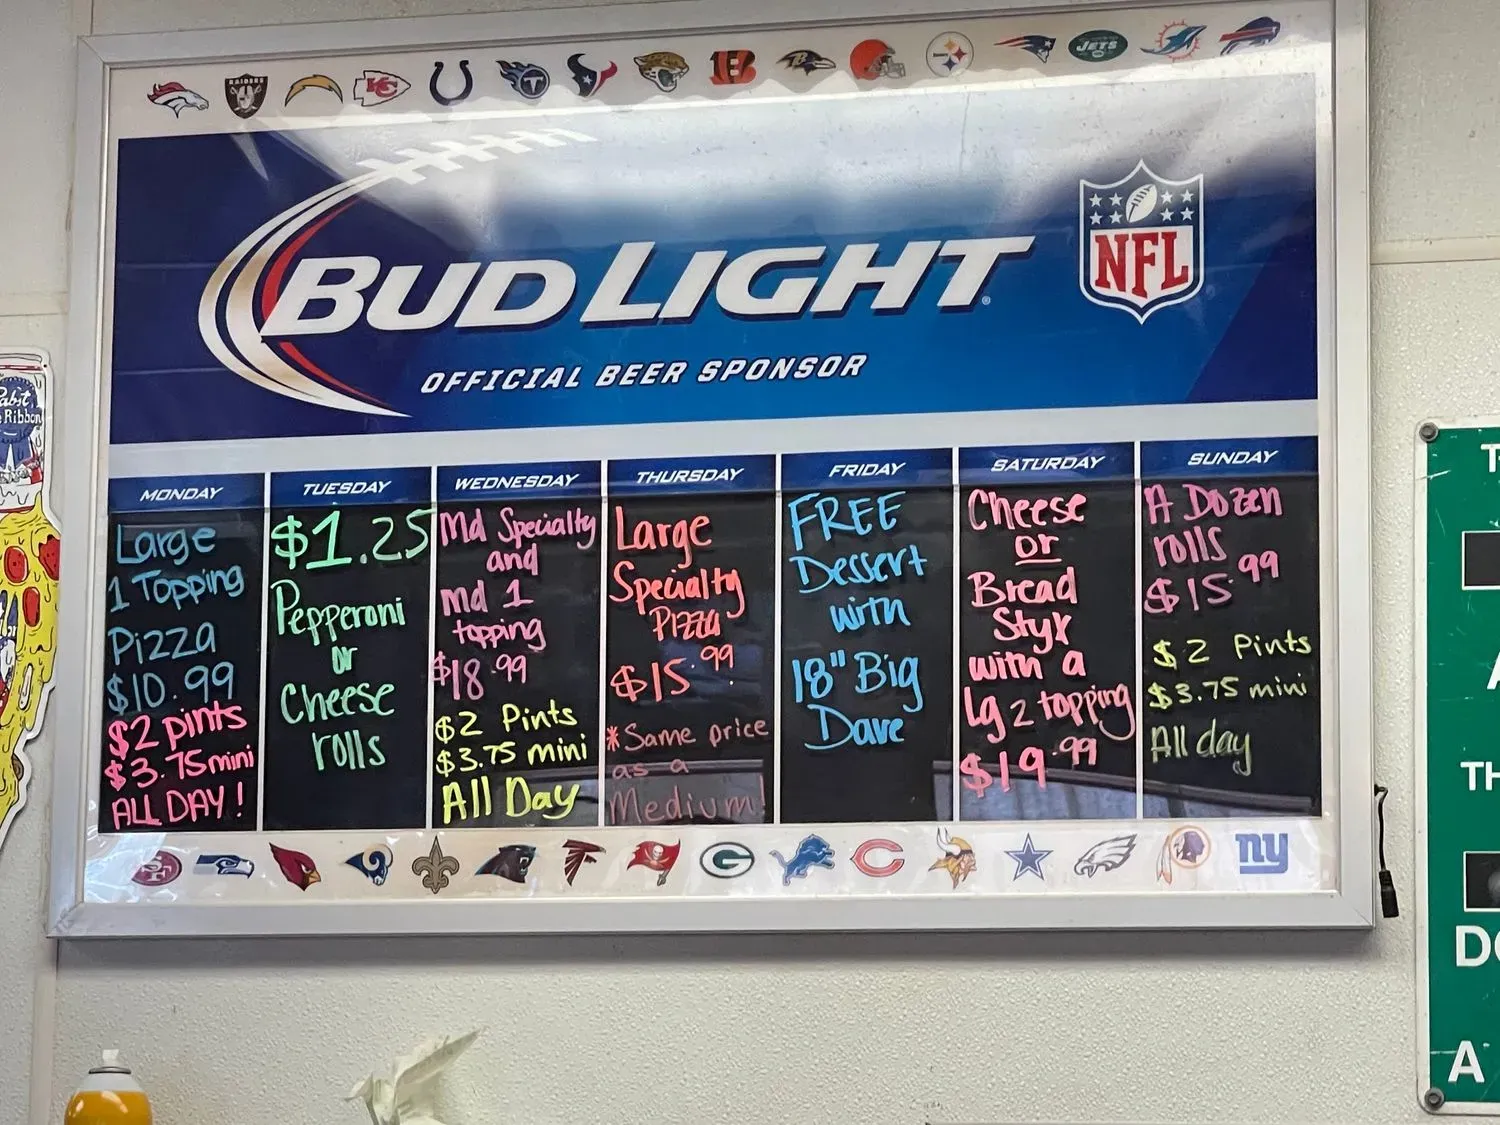 RAIDERS
KC
B
JETS
BUD LIGHT
OFFICIAL BEER SPONSOR
NFL
Pabst
Ribbon
MONDAY
Large
1 Topping
Pizza
$10.99
$2 pints
$3.75 mini
ALL DAY!
TUESDAY
$1.25
Pepperoni
or
Cheese
rolls
WEDNESDAY
Md Specialty
and
md 1
topping
$18.99
$2 Pints
$3.75 mini
All Day
THURSDAY
Large
Specialty
Pizza
$15.99
*Same price
as a
Medium!
FRIDAY
FREE
Dessert
with
18" Big
Dave
SATURDAY
Cheese
or
Bread
Styx
with a
Lg 2 topping
$19.99
SUNDAY
A Dozen
rolls
$15.99
$2 Pints
$3.75 mini
All day
SF
G
C
ny
T
A
TH
DO
A